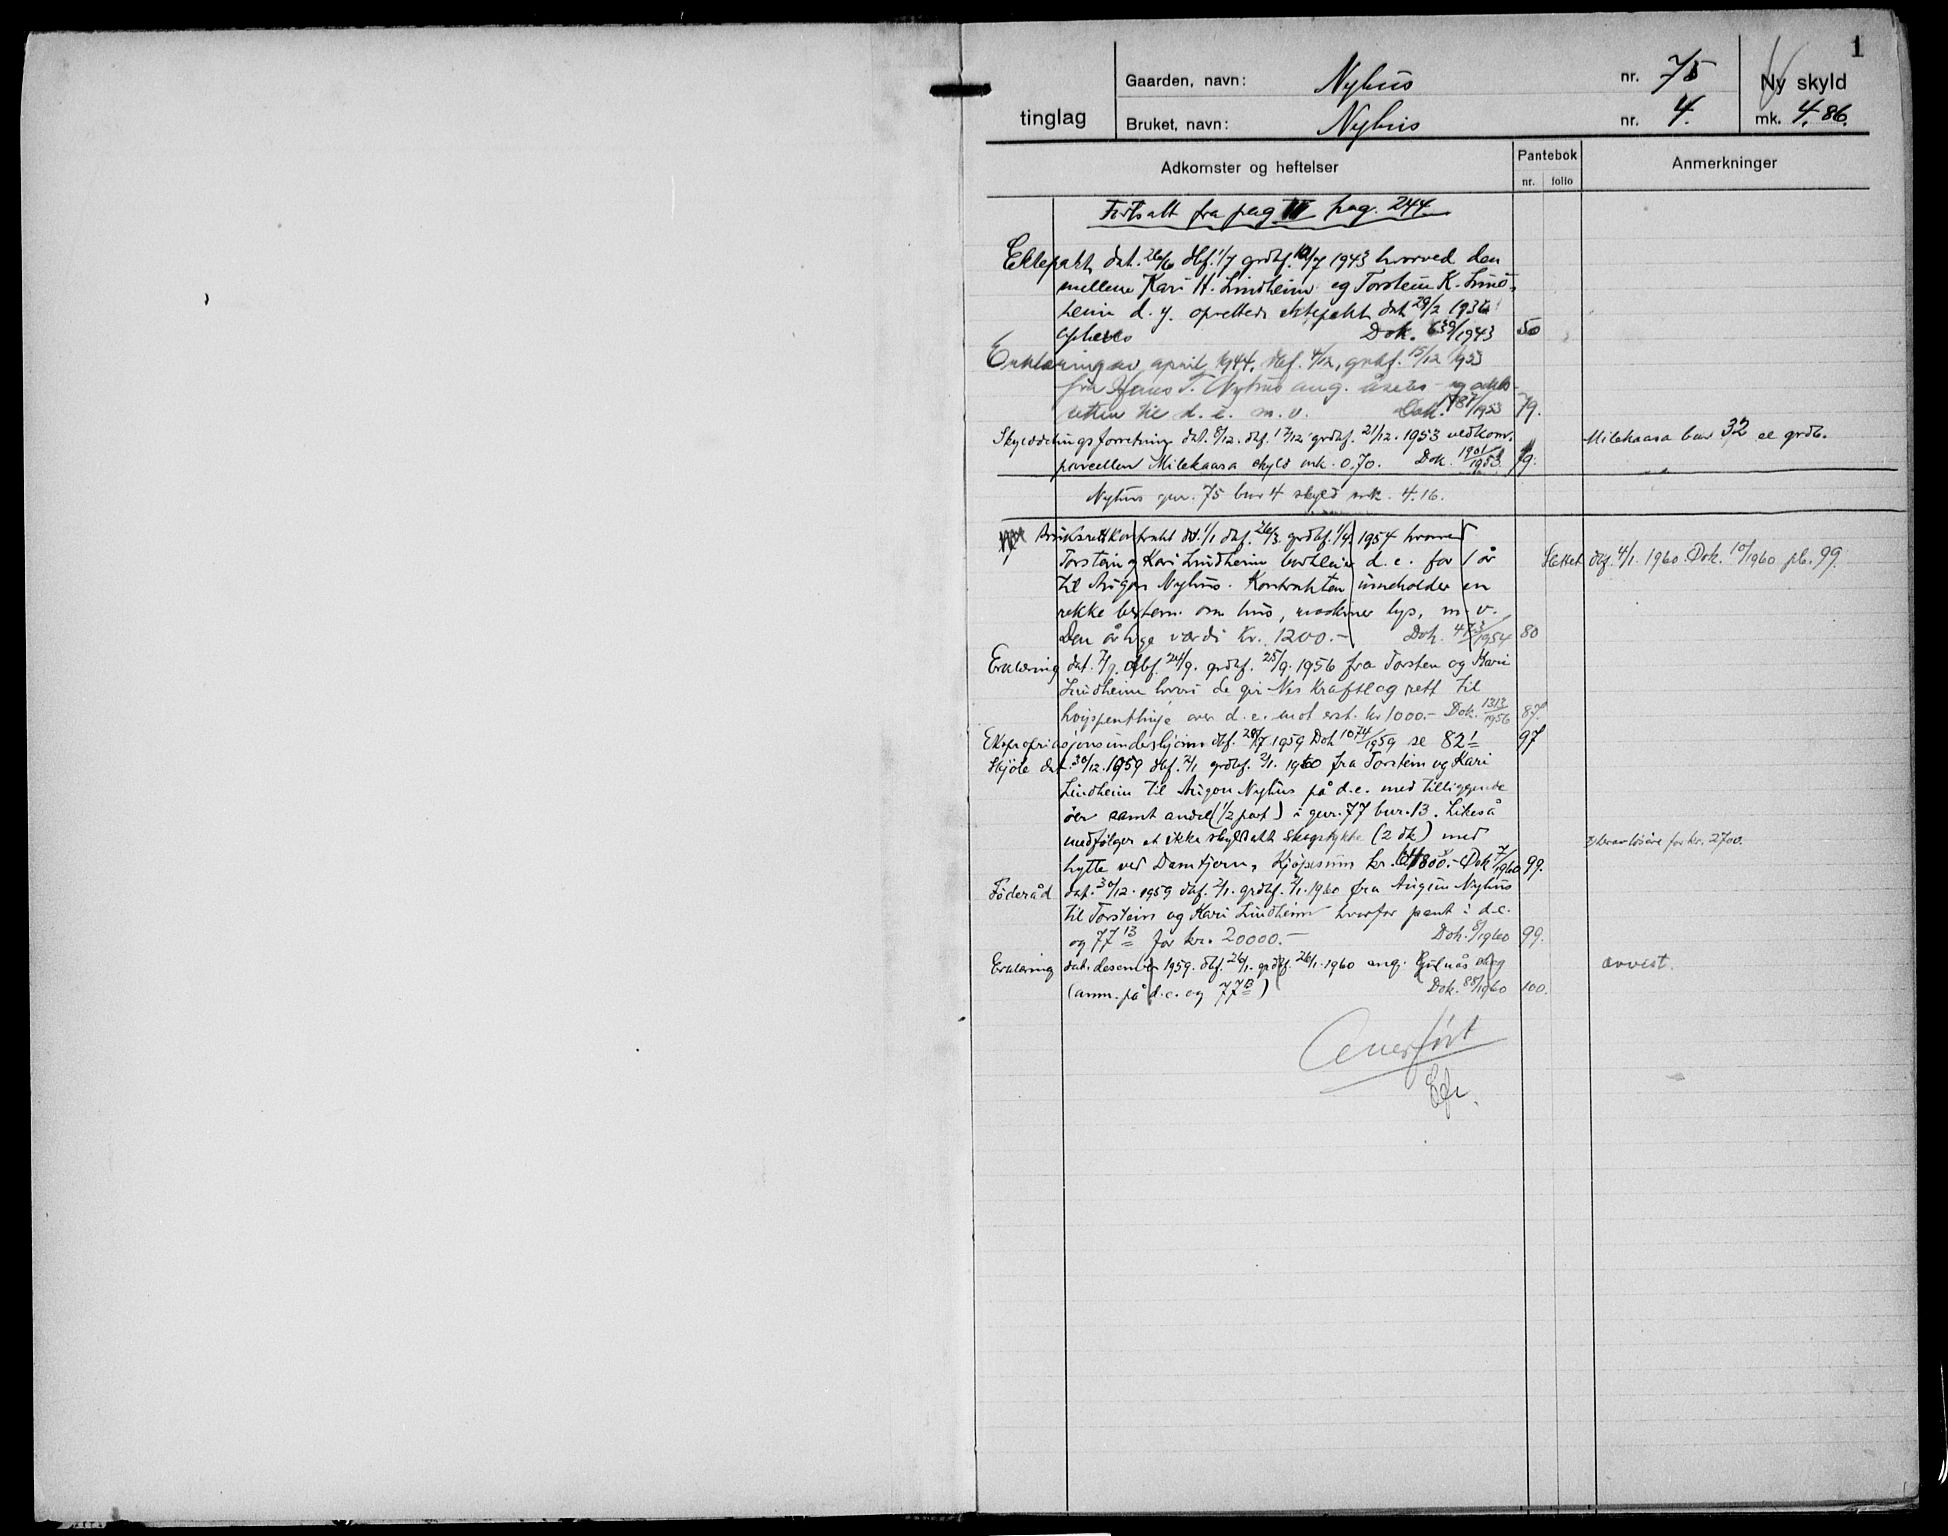 1
Gaarden, navn: Nyhus nr. 75 Ny skyld
tinglag Bruket, navn: Nyhus nr. 4. mk. 4.86.
Adkomster og heftelser Pantebok Anmerkninger
nr. folio
Fortsatt fra pag. 244
Ektepakt dat. 26/6 dbf. 1/7 grdbf. 10/7 1943 hvorved den
mellem Kari H. Lindheim og Torstein K. Lind-
heim d. y. oprettede ektepakt dat 29/2 1936
opheves Dok. 639/1943 50
Erklæring av april 1944, dbf. 4/12, grdbf. 15/12 1953
fra Hans T. Nyhus ang. åsetes- og odels-
retten til d. e. m. v. Dok. 1787/1953 79.
Skylddelingsforretning dat. 8/12. dbf. 17/12 grdbf. 21/12. 1953 vedkom.
parcellen Milekaasa skyld mk. 0.70. Dok. 1901/1953. 79. Milekaasa bnr 32 se grdb.
Nyhus gnr. 75 bnr 4 skyld mk. 4.16.
Bruksrettkontrakt dat. 1/1 dbf. 26/3. grdbf. 1/4. 1954 hvorved
Torstein og Kari Lindheim bortleier d. e. for 1 år Slettet dbf. 4/1. 1960 Dok. 10/1960 pb. 99.
til Augon Nyhus. Kontrakten inneholder en
rekke bestem. om hus, maskiner lys, m. v.
Den årlige verdi kr. 1200.- Dok. 473/1954 80
Erklæring dat. 7/9. dbf. 24/9. grdbf. 25/9. 1956 fra Torsten og Kari
Lindheim hvori de gir Nes Kraftlag rett til
høispentlinje over d. e. mot erst. kr 1000.- Dok. 1313/1956 87.
Ekspropriasjonsunderskjønn dbf. 28/7 1959 Dok 1074/1959 se 82/1 97
Skjøte dat. 30/12. 1959 dbf. 2/1 grdbf. 2/1. 1960 fra Torstein og Kari
Lindheim til Augon Nyhus på d. e. med tilliggende
øer samt andel (1/2 part) i gnr. 77 bnr. 13. Likeså
medfølger et ikke skyldsatt skogstykke (2 dk) med
hytte ved Damtjern. Kjøpesum kr. 800.- Dok 7/1960 99. herav løsøre for kr. 2700.
Føderåd dat. 30/12. 1959 dbf. 2/1. grdbf. 2/1. 1960 fra Augon Nyhus
til Torstein og Kari Lindheim hvorfor pant i d. e.
og 77/13 for kr. 20000.- Dok. 8/1960 99.
Erklæring dat. desember 1959. dbf. 26/1. grdbf. 26/1. 1960 ang. Gulnås skog avvist.
(anm. på d. e. og 77/13) Dok. 88/1960 100.
Overført